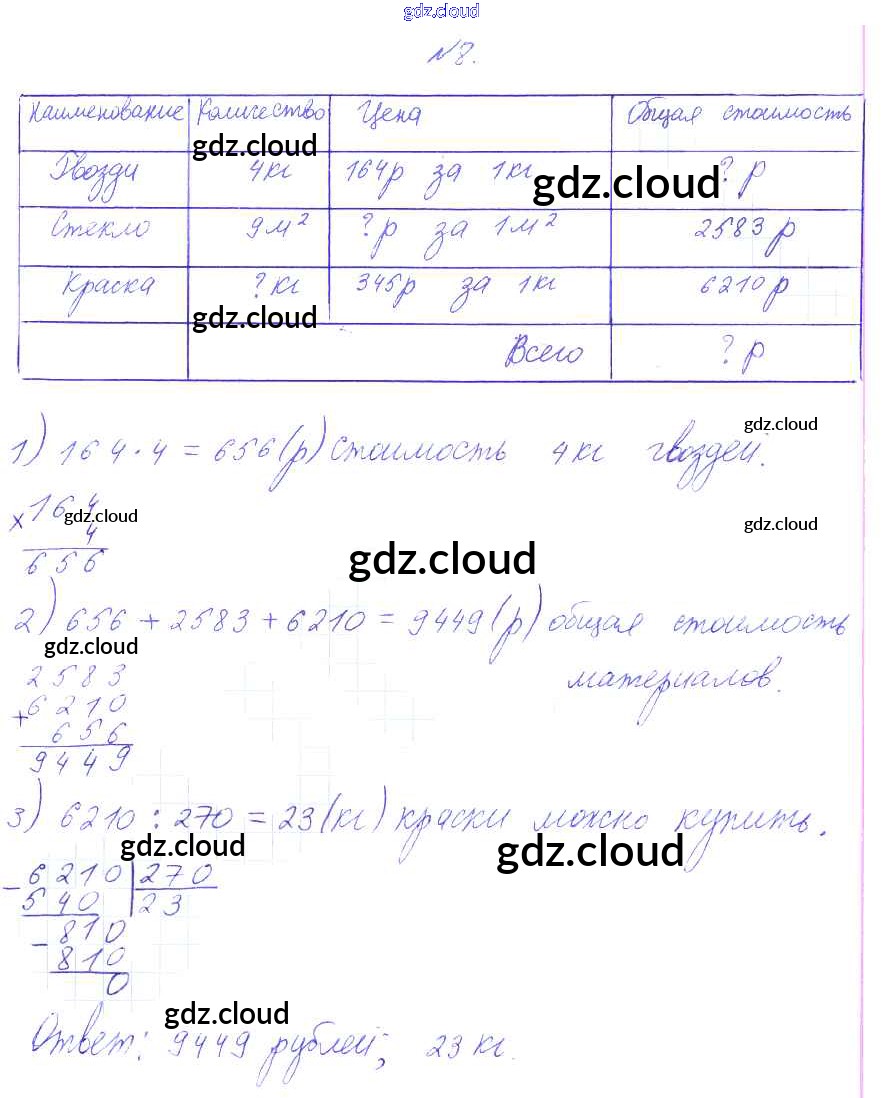 gdz.cloud
№8.
Наименование Количество Цена Общая стоимость
gdz.cloud
Гвозди 4кг 164р за 1кг ? р
gdz.cloud
Стекло 9м² ?р за 1м² 2583 р
Краска ?кг 345р за 1кг 6210 р
gdz.cloud
Всего ? р
gdz.cloud
1) 164 · 4 = 656 (р) стоимость 4кг гвоздей.
× 164
gdz.cloud
gdz.cloud
4
656
gdz.cloud
2) 656 + 2583 + 6210 = 9449 (р) общая стоимость
материалов.
gdz.cloud
2583
+ 6210
656
9449
3) 6210 : 270 = 23 (кг) краски можно купить.
gdz.cloud
gdz.cloud
- 6210 270
540 23
- 810
810
0
gdz.cloud
Ответ: 9449 рублей; 23 кг.